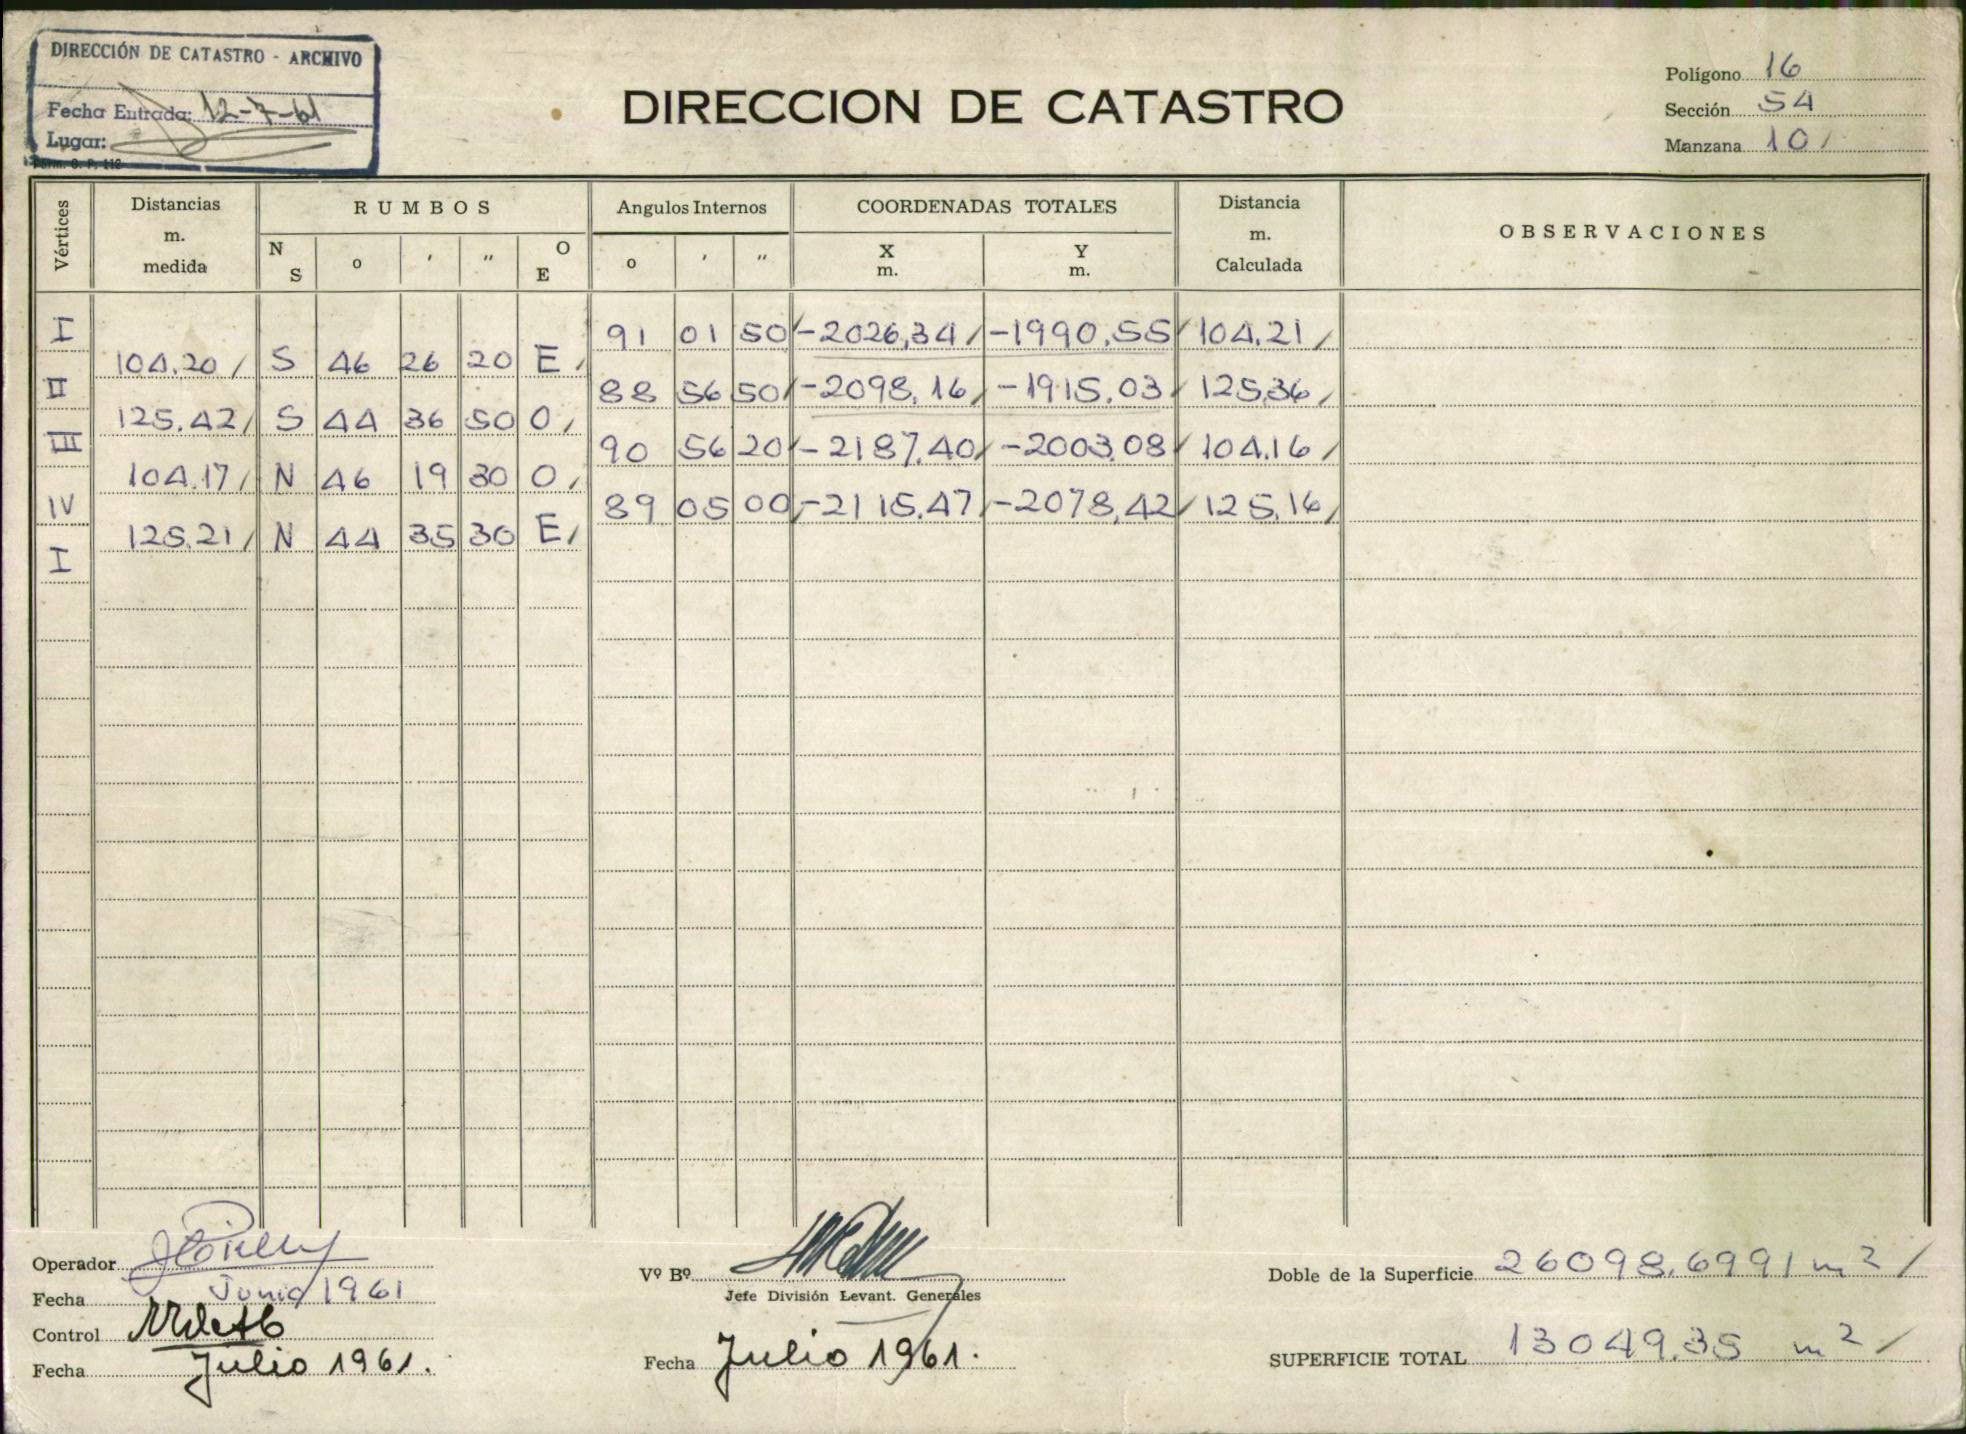 DIRECCIÓN DE CATASTRO - ARCHIVO
Fecha Entrada: 12-7-61
Lugar:
DIRECCION DE CATASTRO
Polígono 16
Sección 54
Manzana 10
Vértices
Distancias m. medida
RUMBOS
N S o ' " O E
Angulos Internos
o ' "
COORDENADAS TOTALES
X m. Y m.
Distancia m. Calculada
OBSERVACIONES
I 91 01 50 -2026,34 -1990,55 104,21
104,20 S 46 26 20 E
II 88 56 50 -2098,16 -1915,03 125,36
125,42 S 44 36 50 O
III 90 56 20 -2187,40 -2003,08 104,16
104,17 N 46 19 30 O
IV 89 05 00 -2115,47 -2078,42 125,16
125,21 N 44 35 30 E
I
Operador
Fecha Junio 1961
Control
Fecha Julio 1961.
Vº Bº
Jefe División Levant. Generales
Fecha Julio 1961.
Doble de la Superficie 26098,6991 m²
SUPERFICIE TOTAL 13049,35 m²